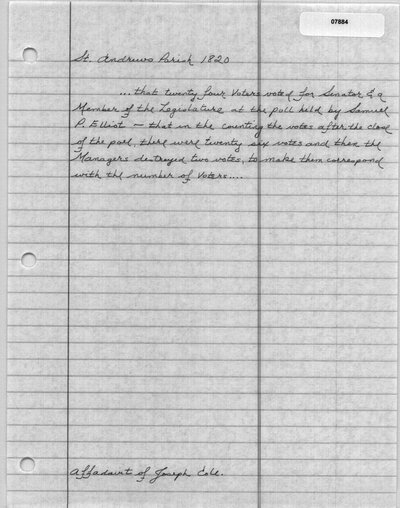 07884
St. Andrews Parish 1820
...that twenty four Voters voted for Senator & a
Member of the Legislature at the poll held by Samuel
P. Elliot — that in the counting the votes after the close
of the pole, there were twenty six votes and then the
Managers destroyed two votes, to make them correspond
with the number of Voters....
Affadavit of Joseph Cole.